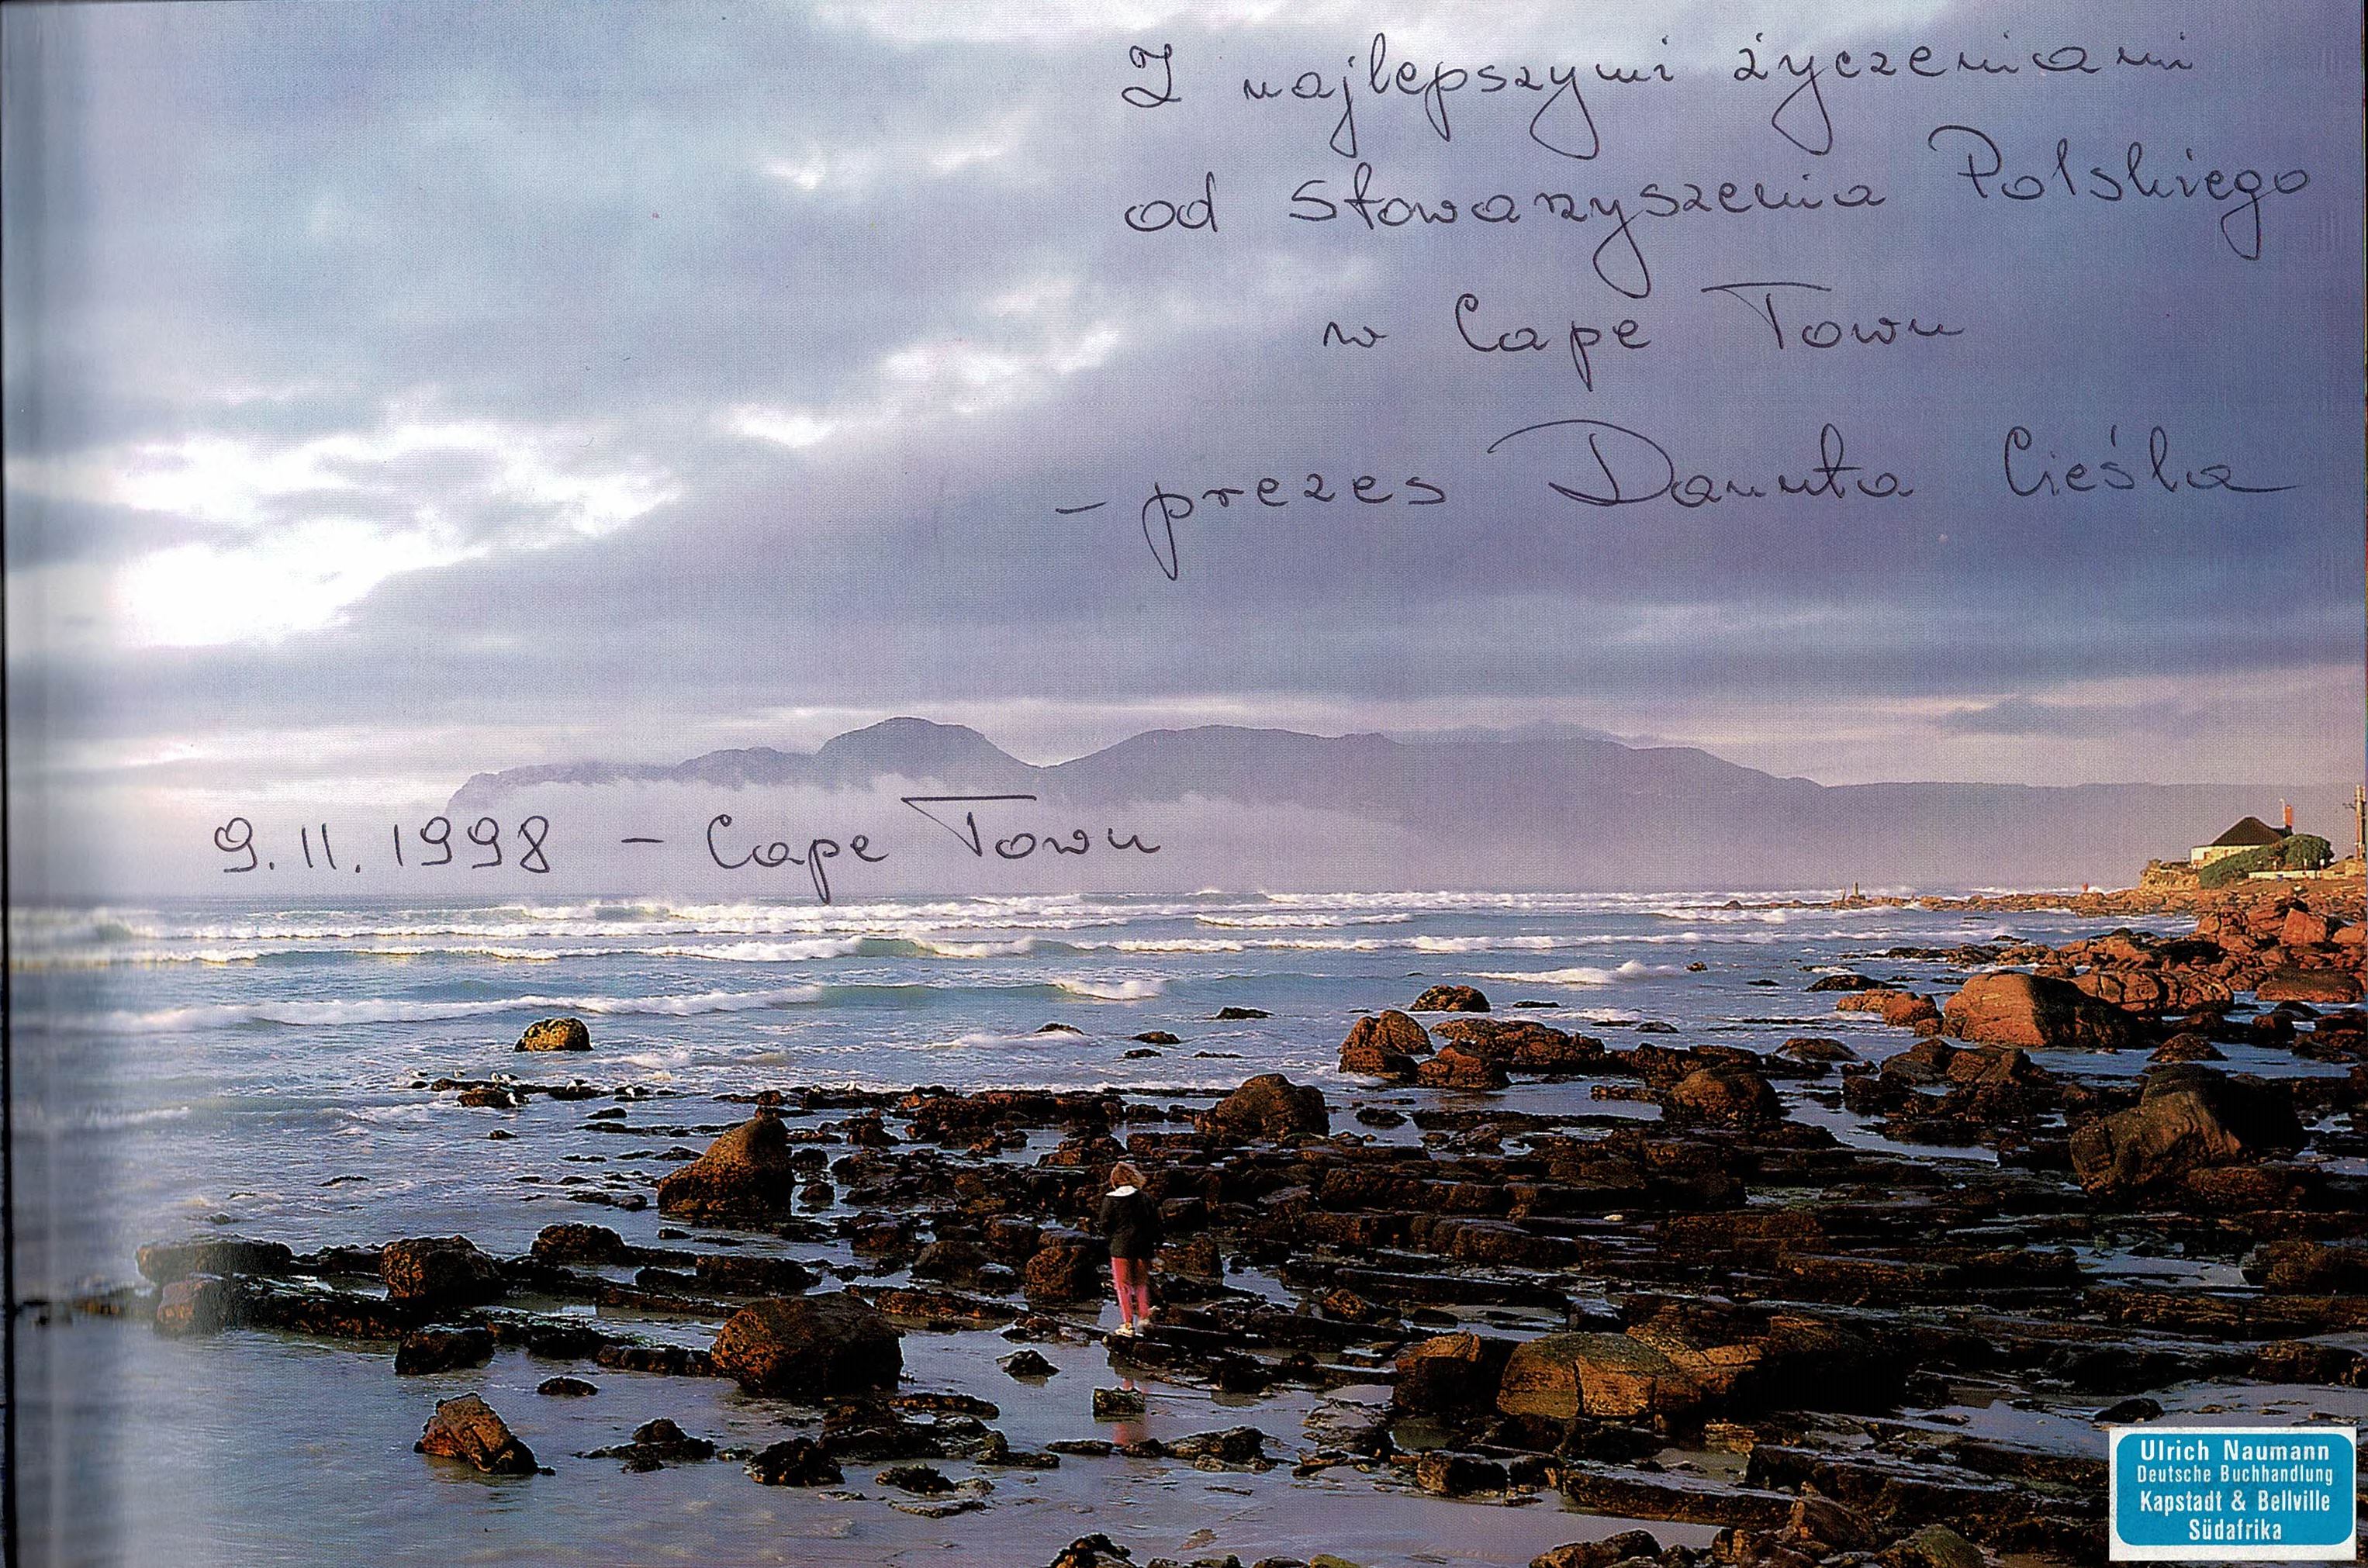 Z najlepszymi życzeniami
od Stowarzyszenia Polskiego
w Cape Town
- prezes Danuta Cieśla
9.11.1998 - Cape Town
Ulrich Naumann
Deutsche Buchhandlung
Kapstadt & Bellville
Südafrika